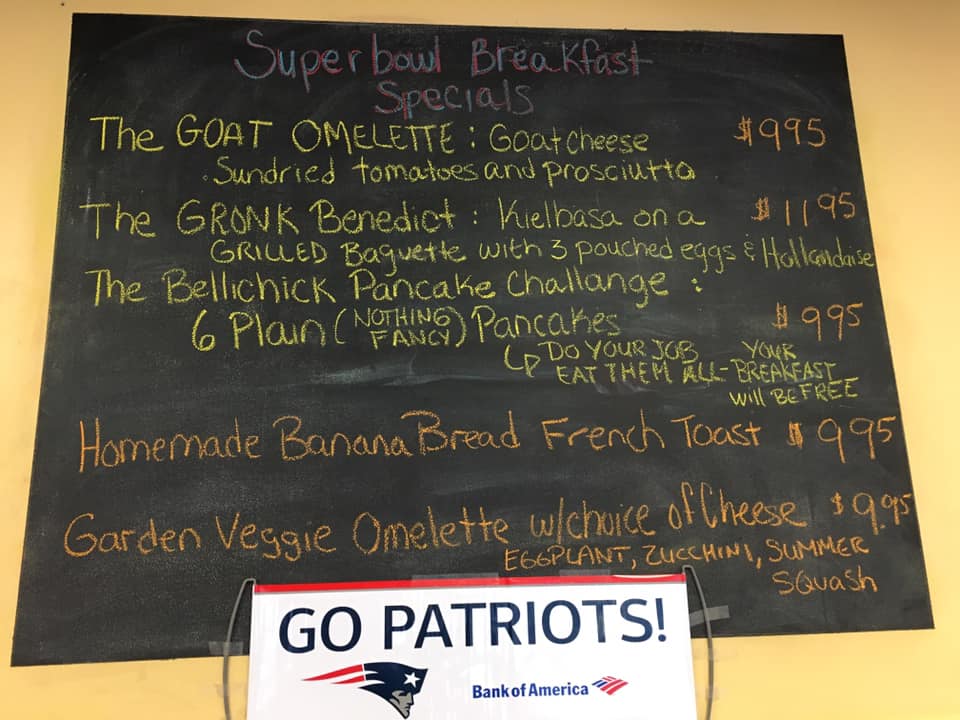 Superbowl Breakfast
Specials
The GOAT OMELETTE : Goat cheese $995
Sundried tomatoes and prosciutto
The GRONK Benedict : Kielbasa on a $1195
GRILLED Baguette with 3 pouched eggs & Hollandaise
The Bellichick Pancake Challange :
6 Plain (NOTHING FANCY) Pancakes $995
↳ DO YOUR JOB YOUR
EAT THEM ALL - BREAKFAST
will BE FREE
Homemade Banana Bread French Toast $995
Garden Veggie Omelette w/choice of Cheese $9.95
EGGPLANT, ZUCCHINI, SUMMER
SQUASH
GO PATRIOTS!
Bank of America